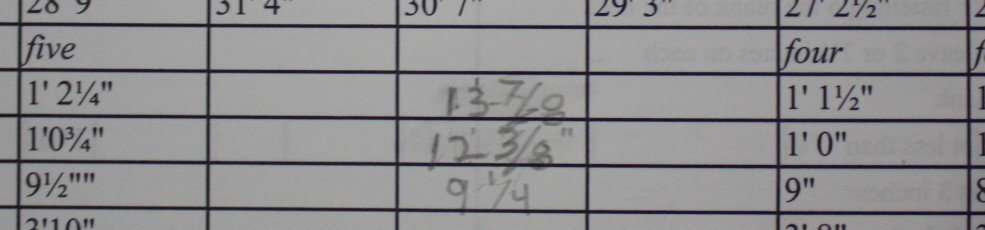 28' 9" 31' 4" 30' 7" 29' 3" 27' 2½"
five four
1' 2¼" 13-7/8 1' 1½"
1'0¾" 12 3/8" 1' 0"
9½"" 9 1/4 9"
3'10"